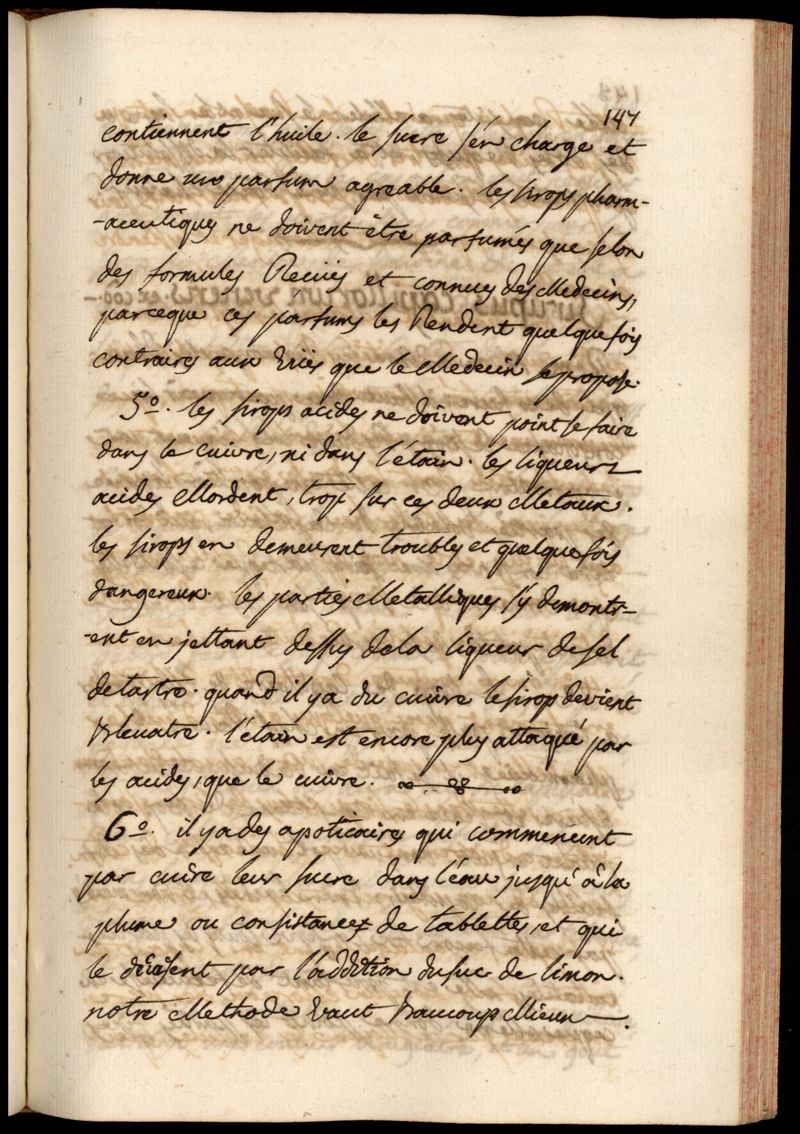 147
contiennent l'huile. le sucre s'en charge et
donne un parfum agreable. les sirops pharm-
-aceutiques ne doivent être parfumés que selon
des formules Reçües et connues des Médecins,
parceque ces parfums les Rendent quelque fois
contraires aux Vües que le Medecin se propose.
5º. les sirops acides ne doivent point se faire
dans le cuivre, ni dans l'étain. les liqueurs
acides Mordent, trop sur ces deux Metaux.
les sirops en demeurent troubles et quelque fois
dangereux. les parties Metalliques s'y demontr-
-ent en jettant dessus de la liqueur de sel
de tartre. quand il y a du cuivre le sirop devient
bleuatre. l'étain est encore plus attaqué par
les acides, que le cuivre.
6º. il y a des apoticaires qui commencent
par cuire leur sucre dans l'eau jusqu'à la
plume ou consistance de tablettes, et qui
le par l'addition du suc de limon.
notre Methode Vaut beaucoup Mieux.